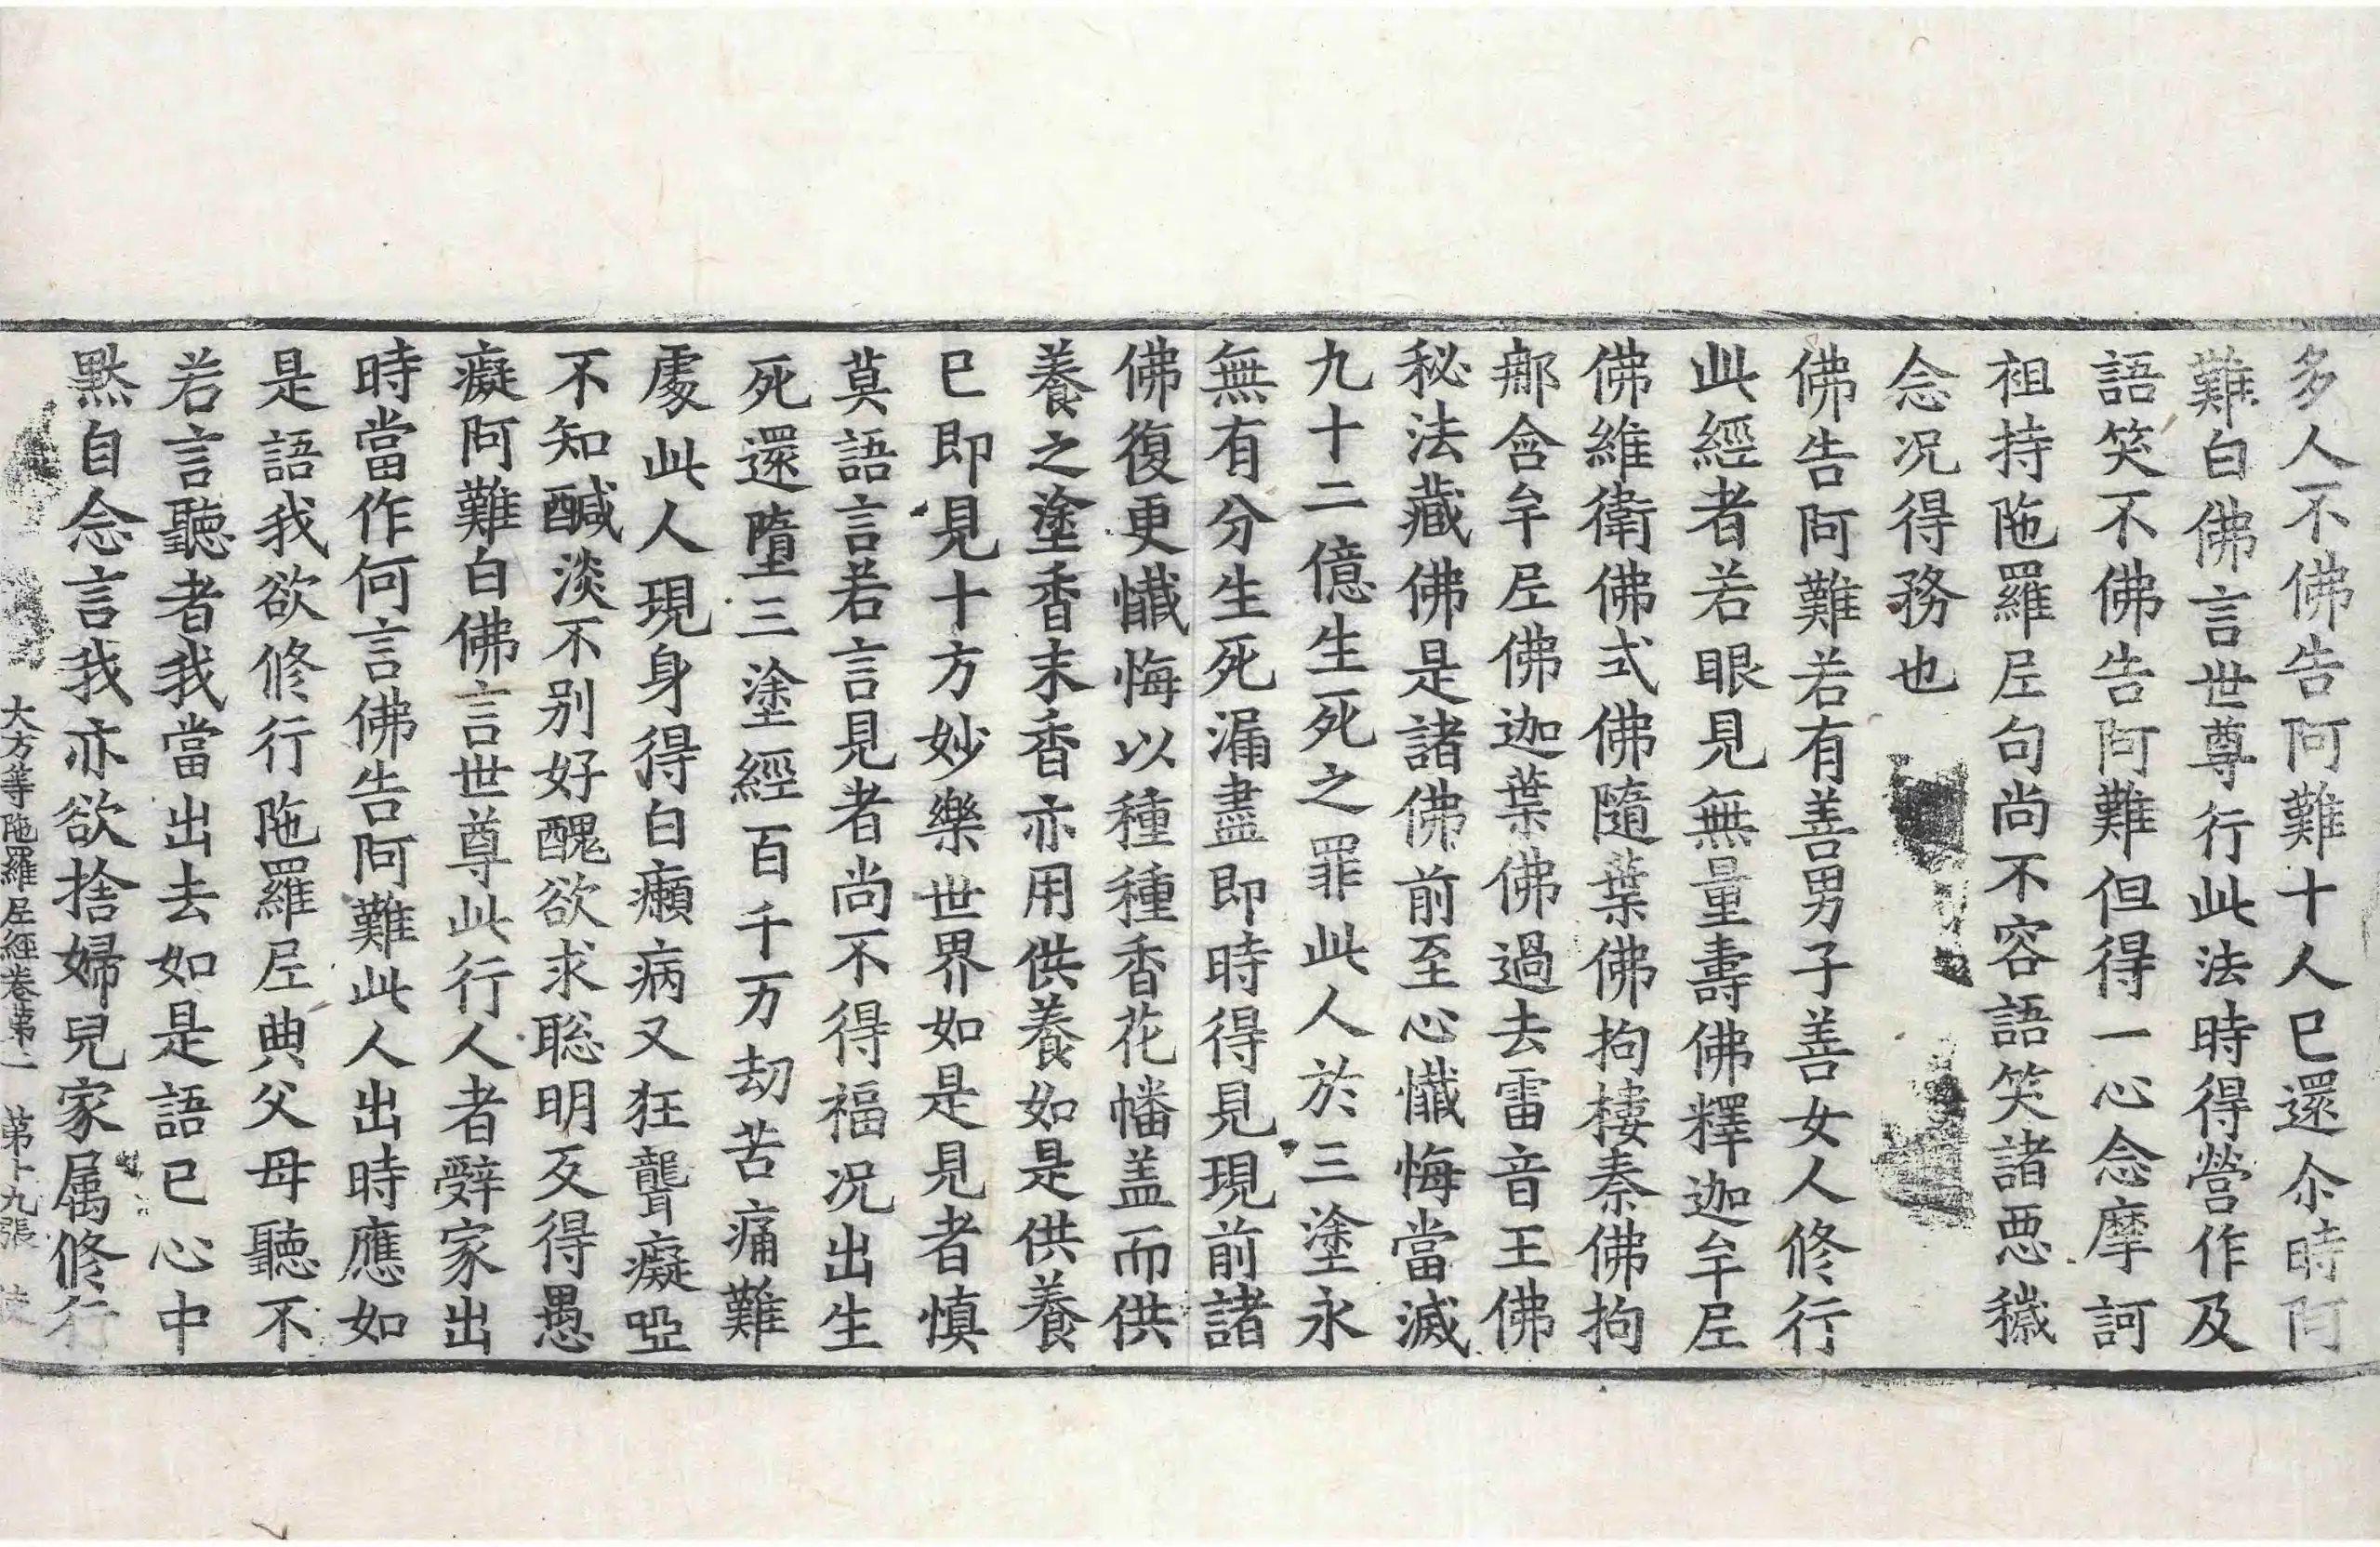 多人不佛告阿難十人已還尒時阿
難白佛言世尊行此法時得營作及
語笑不佛告阿難但得一心念摩訶
袒持陁羅𡰱句尚不容語笑諸惡穢
念况得務也
佛告阿難若有善男子善女人修行
此經者若眼見無量壽佛釋迦牟𡰱
佛維衛佛式佛隨葉佛拘樓秦佛拘
那含牟𡰱佛迦葉佛過去雷音王佛
秘法藏佛是諸佛前至心懺悔當滅
九十二億生死之罪此人於三塗永
無有分生死漏盡即時得見現前諸
佛復更懺悔以種種香花幡盖而供
養之塗香末香亦用供養如是供養
已即見十方妙樂世界如是見者慎
莫語言若言見者尚不得福况出生
死還墮三塗經百千万劫苦痛難
處此人現身得白癩病又狂聾癡瘂
不知醎淡不別好醜欲求聦明反得愚
癡阿難白佛言世尊此行人者辤家出
時當作何言佛告阿難此人出時應如
是語我欲修行陁羅𡰱典父母聽不
若言聽者我當出去如是語已心中
黙自念言我亦欲捨婦兒家属修行
大方等陁羅𡰱經卷第一 第十九張